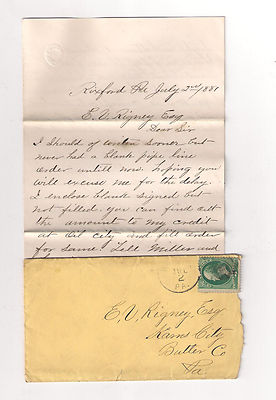 Rixford Pa July 2nd/1881
E. V. Rigney Esq
Dear Sir
I should of wrten sooner but
never had a blank pipe line
order untill now. hoping you
will excuse me for the delay.
I enclose blank signed but
not filled. you can find out
the amount to my credit
at Oil City and fill order
for same. Tell Miller and
JUL
2
PA.
E. V. Rigney, Esq
Karns City
Butler Co
Pa.